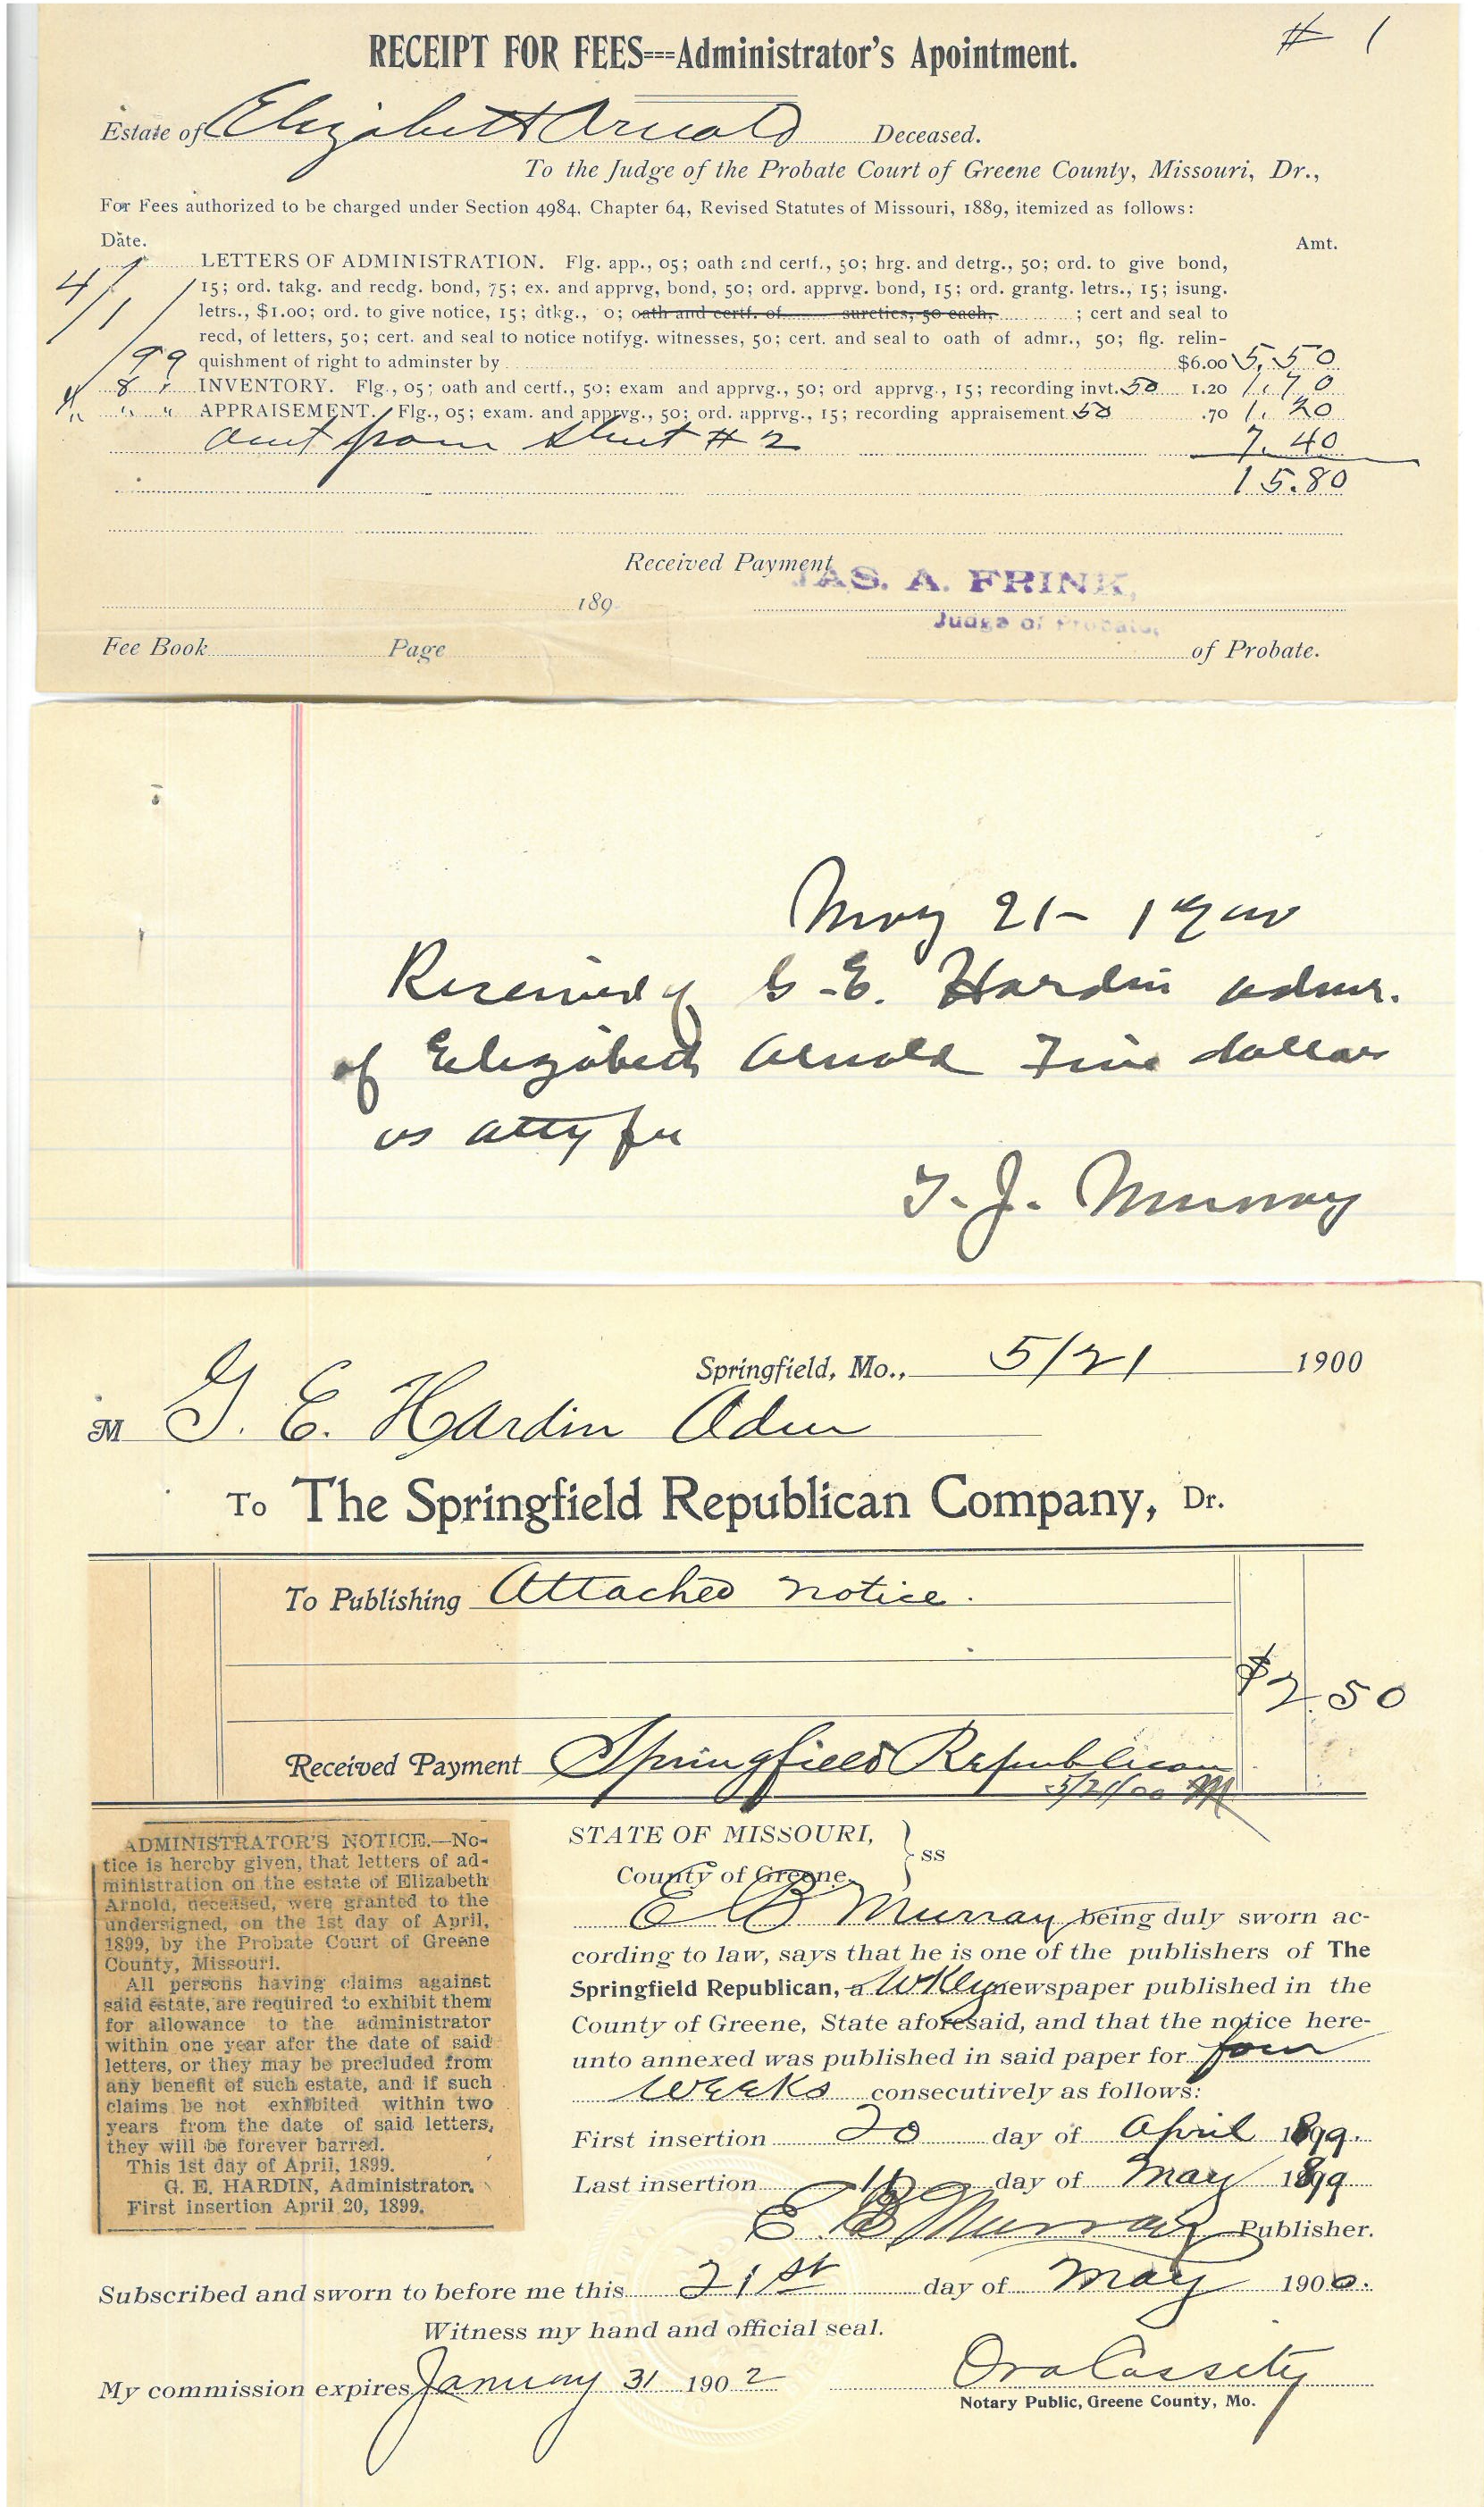 # 1
RECEIPT FOR FEES---Administrator's Apointment.
Estate of Elizabeth Arnold Deceased.
To the Judge of the Probate Court of Greene County, Missouri, Dr.,
For Fees authorized to be charged under Section 4984, Chapter 64, Revised Statutes of Missouri, 1889, itemized as follows:
Date. Amt.
4/1/99 LETTERS OF ADMINISTRATION. Flg. app., 05; oath and certf., 50; hrg. and detrg., 50; ord. to give bond,
15; ord. takg. and recdg. bond, 75; ex. and apprvg, bond, 50; ord. apprvg. bond, 15; ord. grantg. letrs., 15; isung.
letrs., $1.00; ord. to give notice, 15; dtkg., 0; oath and certf. of sureties, 50 each, ; cert and seal to
recd, of letters, 50; cert. and seal to notice notifyg. witnesses, 50; cert. and seal to oath of admr., 50; flg. relin-
quishment of right to adminster by $6.00 5.50
8 INVENTORY. Flg., 05; oath and certf., 50; exam and apprvg., 50; ord apprvg., 15; recording invt. 50 1.20 1.70
" " APPRAISEMENT. Flg., 05; exam. and apprvg., 50; ord. apprvg., 15; recording appraisement 50 .70 1.20
amt from sheet # 2 7.40
15.80
Received Payment
JAS. A. FRINK,
189
Judge of Probate,
Fee Book Page of Probate.
May 21- 1900
Received of G.E. Hardin admr.
of Elizabeth Arnold Five dollars
as atty fee
T. J. Murray
Springfield, Mo., 5/21 1900
M G. E. Hardin Adm
To The Springfield Republican Company, Dr.
To Publishing Attached notice.
$2.50
Received Payment Springfield Republican
5/21/00 M
ADMINISTRATOR'S NOTICE.—No-
tice is hereby given, that letters of ad-
ministration on the estate of Elizabeth
Arnold, deceased, were granted to the
undersigned, on the 1st day of April,
1899, by the Probate Court of Greene
County, Missouri.
All persons having claims against
said estate, are required to exhibit them
for allowance to the administrator
within one year afer the date of said
letters, or they may be precluded from
any benefit of such estate, and if such
claims be not exhibited within two
years from the date of said letters,
they will be forever barred.
This 1st day of April, 1899.
G. E. HARDIN, Administrator.
First insertion April 20, 1899.
STATE OF MISSOURI,
County of Greene. } ss
E B Murray being duly sworn ac-
cording to law, says that he is one of the publishers of The
Springfield Republican, a Wkly newspaper published in the
County of Greene, State aforesaid, and that the notice here-
unto annexed was published in said paper for four
weeks consecutively as follows:
First insertion 20 day of April 1899.
Last insertion day of May 1899
E. B. Murray Publisher.
Subscribed and sworn to before me this 21st day of May 1900.
Witness my hand and official seal.
My commission expires January 31 1902 Ora Cassity
Notary Public, Greene County, Mo.